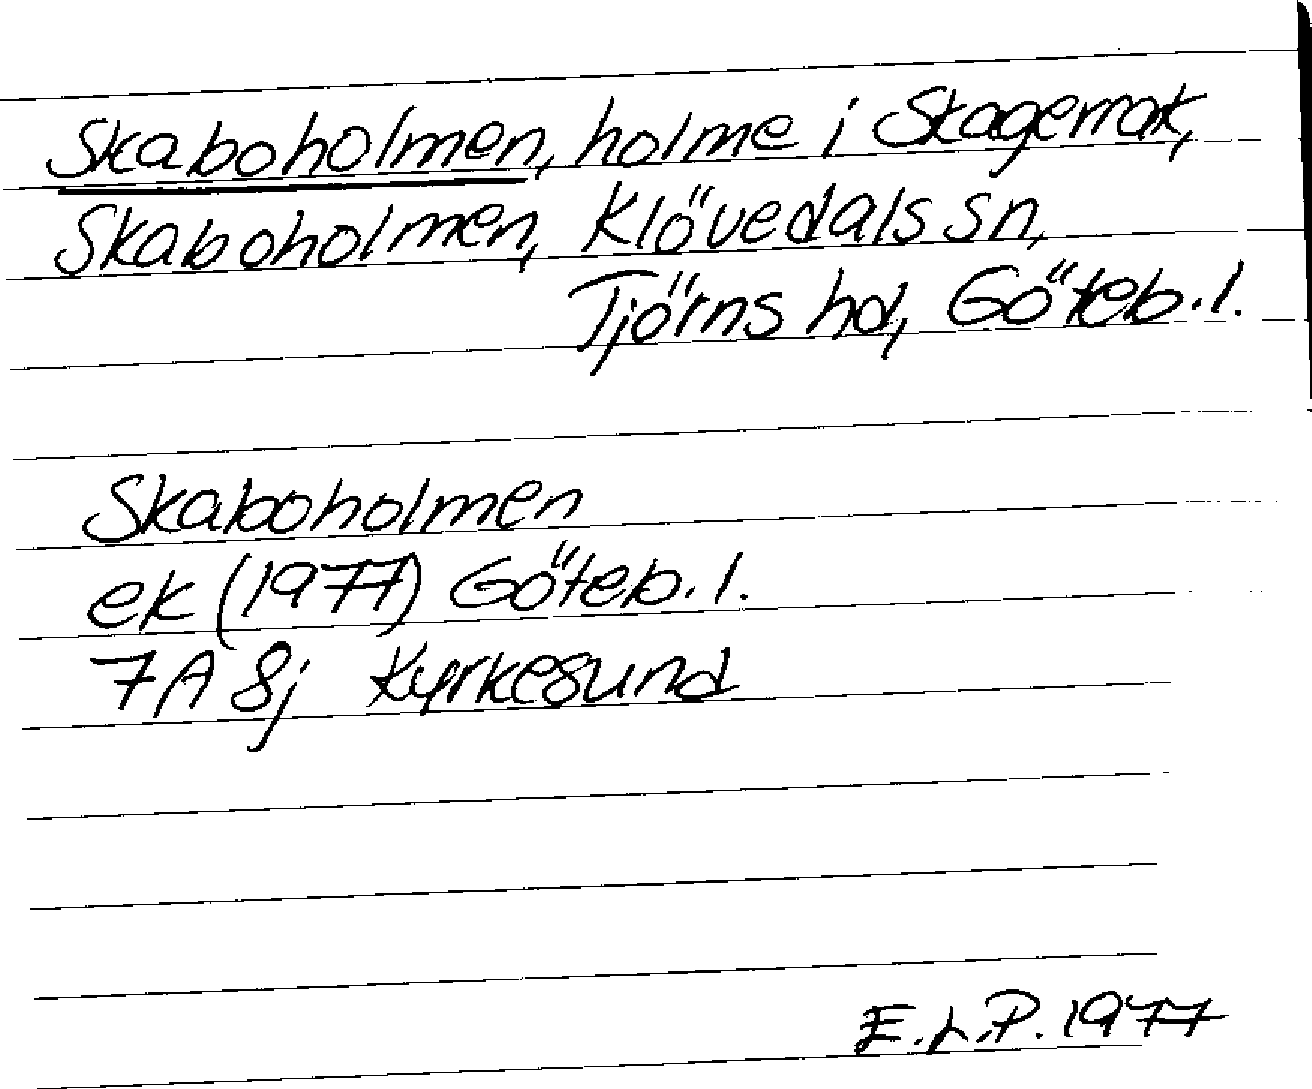 Skaboholmen, holme i Skagerrak,
Skaboholmen, Klövedals sn,
Tjörns hd, Göteb.l.
Skaboholmen
ek (1977) Göteb.l.
7A 8j Kyrkesund
E.L.P. 1977